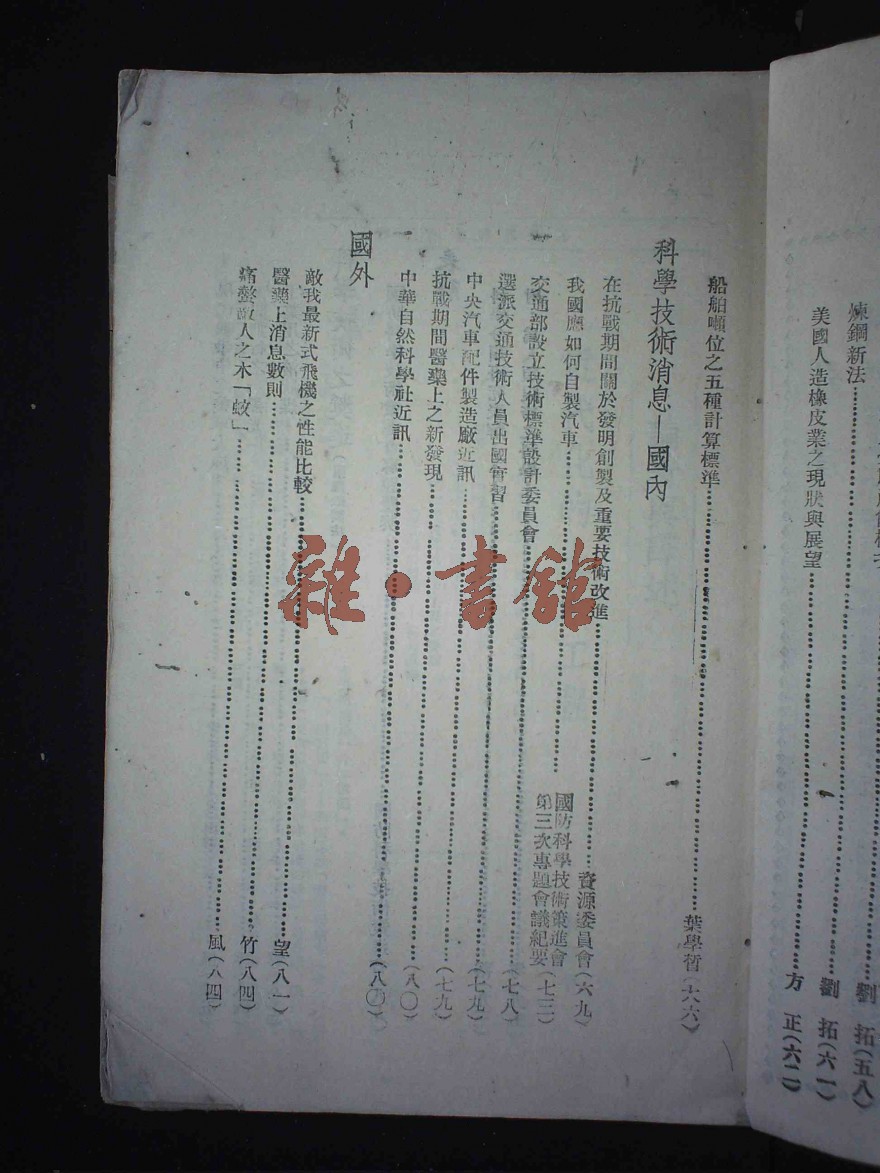 劉　拓(五八)
煉鋼新法……劉　拓(六一)
美國人造橡皮業之現狀與展望……方　正(六二)
船舶噸位之五種計算標準……葉學晢(六六)
科學技術消息—國內
在抗戰期間關於發明創製及重要技術改進……資源委員會(六九)
我國應如何自製汽車……國防科學技術策進會
第三次專題會議紀要(七三)
交通部設立技術標準設計委員會……(七八)
選派交通技術人員出國實習……(七九)
中央汽車配件製造廠近訊……(七九)
抗戰期間醫藥上之新發現……(八〇)
中華自然科學社近訊……(八〇)
國外
敵我最新式飛機之性能比較……望(八一)
醫藥上消息數則……竹(八四)
痛螫人之木「蚊」……風(八四)
雜·書館